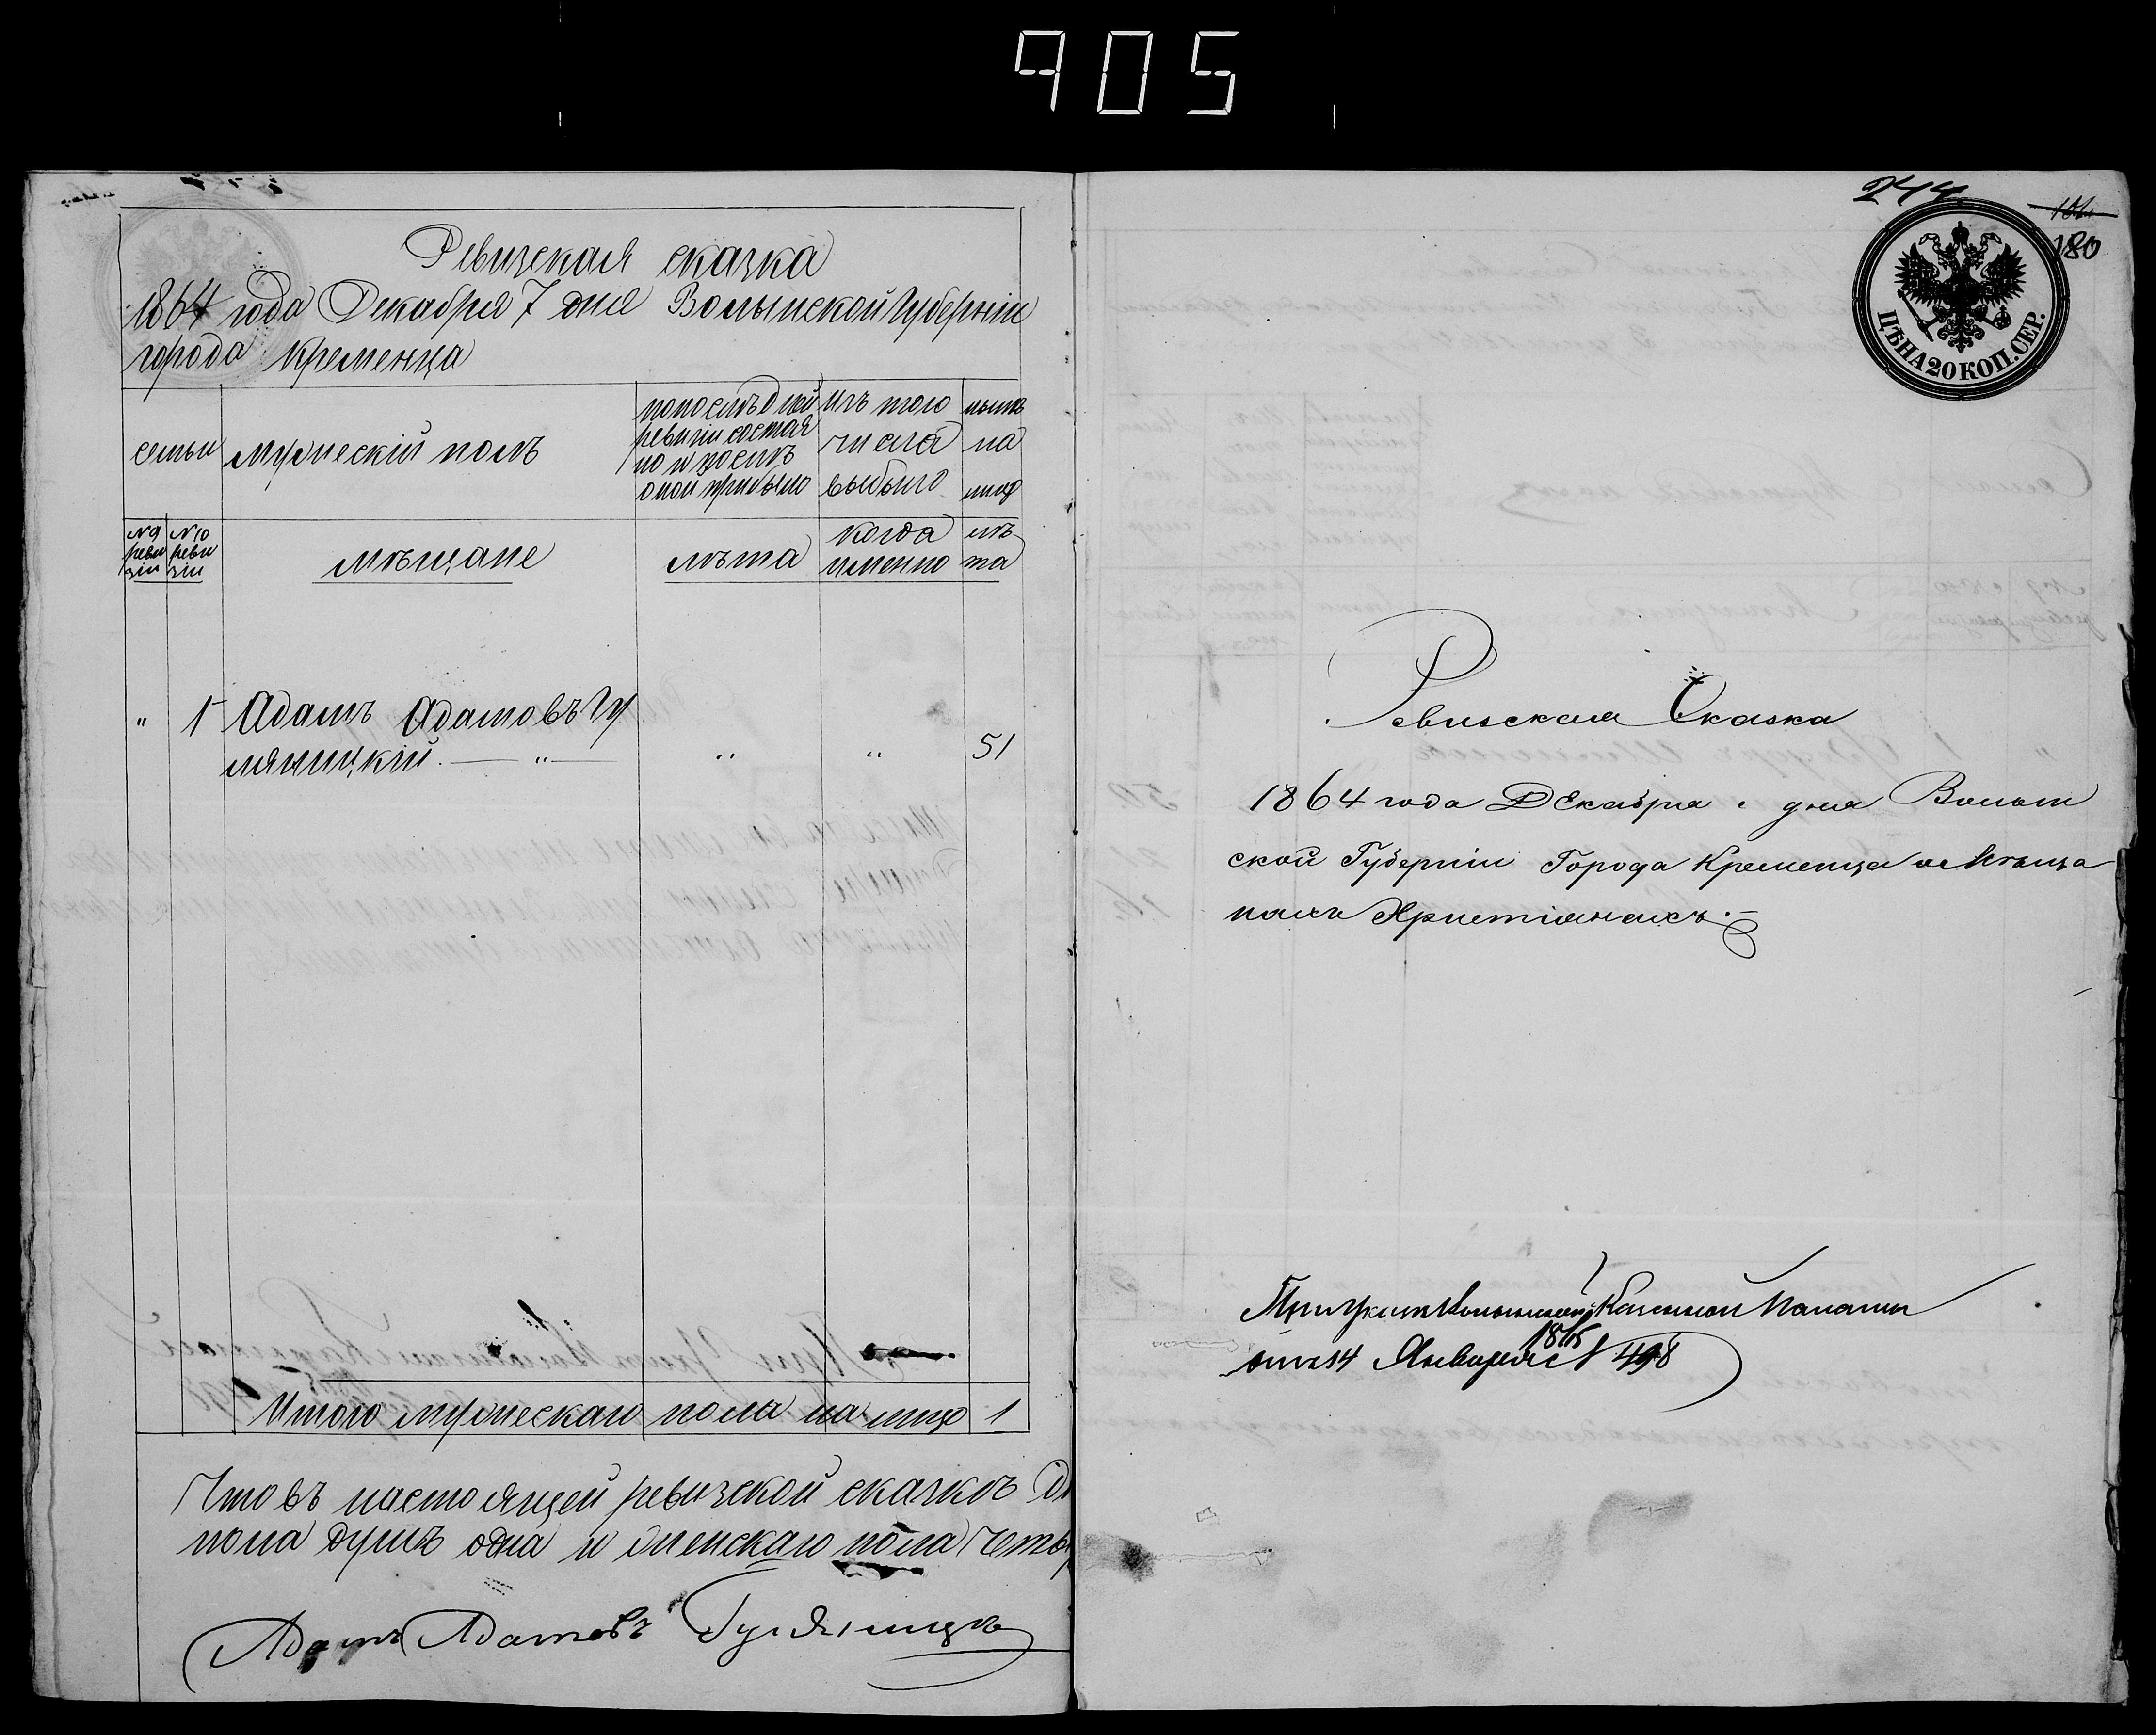 905
Ревизская сказка
1864 года Декабря 7 дня Волынской Губерніи
города Кременца
семьи
мужескій полъ
по послѣдней
ревизіи состоя
ло и послѣ
оной прибыло
изъ того
числа
выбыло
нынѣ
на
лицо
№9
реви
зіи
№10
реви
зіи
мѣщане
лѣта
когда
именно
лѣ
та
" 1 Адамъ Адамовъ Гу
ляницкій. — " — " " 51
Итого мужескаго пола на лицо 1
Что въ настоящей ревизской сказкѣ
пола душъ одна и женскаго пола четы
Адамъ Адамовъ Гуляницкъ
244
180
ЦѢНА 20 КОП. СЕР.
Ревизская Сказка
1864 года Декабря " дня Волын
ской Губерніи Города Кременца о Мѣща
нахъ Христіанахъ.
При Указѣ Волынской Казенной Палаты
отъ 14 Января 1865 № 498